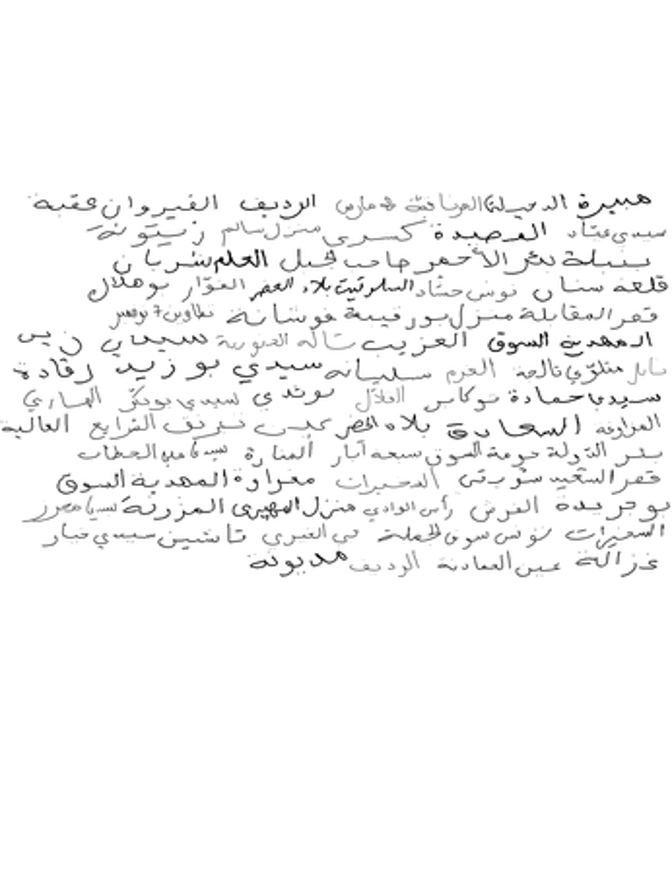 هبيرة الدخيلة العرنافية مارس الرديف القيروان عقبة
سيدي عيّاد القصيدة كسرى منزل سالم زيتونة
بئر الأحمر صاحب الجبل العلم شربان
قلعة سنان تونس حشاد السلوقية بلاد الحضر الفوّار بوهلال
قصر المقابلة منزل بورقيبة فوشانة تطاوين 7 نوفمبر
المهدية السوق العزيب تالة الجنوبية سيدي زيد
نابل متلوّي تالجة الحرم سليانة سيدي بوزيد رقادة
سيدي حمادة توكابر الفلال توندي سيدي بوبكر الهباري
العرارقة السعادة بلاد الحضر الشرايع العالية
بئر الدولة حومة السوق سبعة آبار المنارة سيدي الحطاب
قصر السعيد ستوتي الدخيرات مغراوة المهدية السوق
بوجريدة القرش رأس الوادي منزل المهيري المزرنة سيدي محرز
الصغيرات تونس سوق الجملة حي الخيري تاشين سيدي خيار
غزالة عين الحمادنة الرديف مديونة